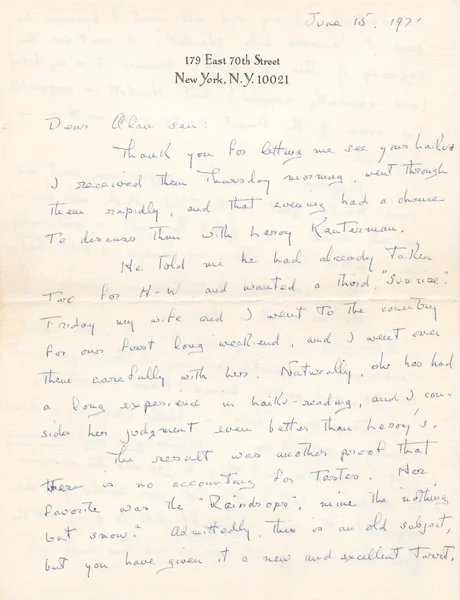 June 15, 197
179 East 70th Street
New York, N.Y. 10021
Dear Alan san:
Thank you for letting me see your haiku.
I received them Thursday morning, went through
them rapidly, and that evening had a chance
to discuss them with Leroy Kanterman.
He told me he had already taken
two for H-W and wanted a third, "Sunrise."
Friday my wife and I went to the country
for our first long weekend, and I went over
them carefully with her. Naturally, she has had
a long experience in haiku-reading, and I con-
sider her judgment even better than Leroy's.
The result was another proof that
there is no accounting for tastes. Her
favorite was the "Raindrops", mine the "nothing
but snow." Admittedly, this is an old subject,
but you have given it a new and excellent twist.